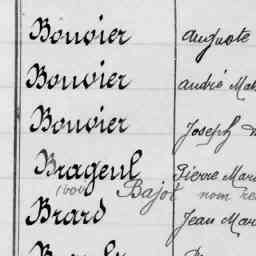 Bouvier Auguste
Bouvier André
Bouvier Joseph
Brageul Pierre Mari
Bajot nom
Brard Jean Mar